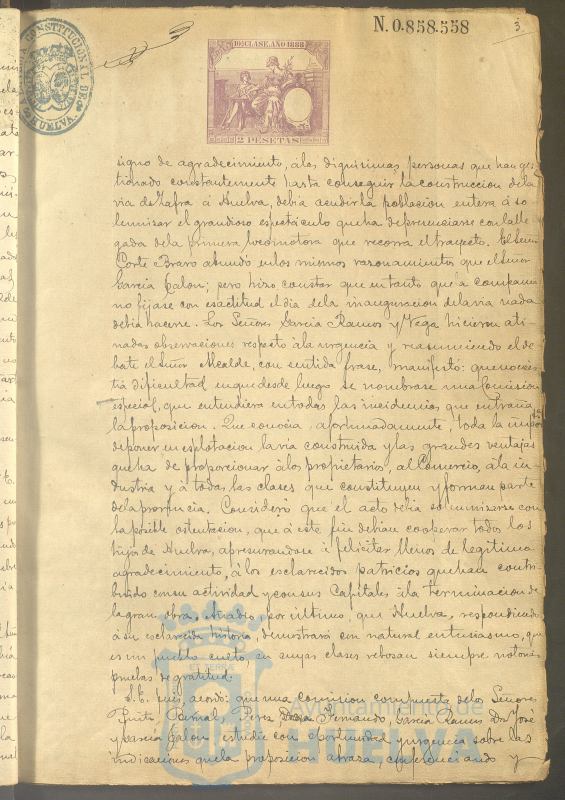 N. 0.858.558
3
ALCALDIA CONSTITUCIONAL DE HUELVA
10ª CLASE. AÑO 1888
2 PESETAS
signo de agradecimiento, á las dignisimas personas que han ges-
tionado constantemente hasta conseguir la construccion de la
via de Zafra á Huelva, debia acudir la poblacion entera á so-
lemnizar el grandioso espectáculo que ha de presenciarse con la lle-
gada de la primera locomotora que recorra el trayecto. El Señor
Corte Bravo abundó en los mismos razonamientos que el Señor
Garcia Jalon; pero hizo constar que en tanto que la compañia
no fijase con esactitud el dia de la inauguracion de la via nada
debia hacerse. Los Señores Garcia Ramos y Vega hicieron ati-
nadas observaciones respecto á la urgencia y reasumiendo el de-
bate el Señor Alcalde, con sentida frase, manifestó: que no exis-
tia dificultad en que desde luego se nombrase una Comision
especial, que entendiera en todas las incidencias que entraña
la proposicion. Que conocia, afortunadamente, toda la impor
de poner en esplotacion la via construida y las grandes ventajas
que ha de proporcionar á los propietarios, al Comercio, á la in-
dustria y á todas las clases que constituyen y forman parte
de la provincia. Consideró que el acto debia solemnizarse con
la posible ostentacion, que á este fin debian cooperar todos los
hijos de Huelva, apresurandose á felicitar llenos de legitimo
agradecimiento, á los esclarecidos patricios que han contri-
buido con su actividad y con sus Capitales á la terminacion de
la gran obra. Añadió por último, que Huelva, respondiendo
á su esclarecida historia, demostrará con natural entusiasmo, que
es un pueblo culto, en cuyas clases rebosan siempre notorias
pruebas de gratitud.
S. E. pues, acordó: que una Comision compuesta de los Señores
Bernal, Perez Fernando, Garcia Ramos Dn José
y Garcia Jalon estudie con oportunidad y urgencia sobre las
indicaciones que la proposicion abraza, conferenciando y
Ayuntamiento de
HUELVA